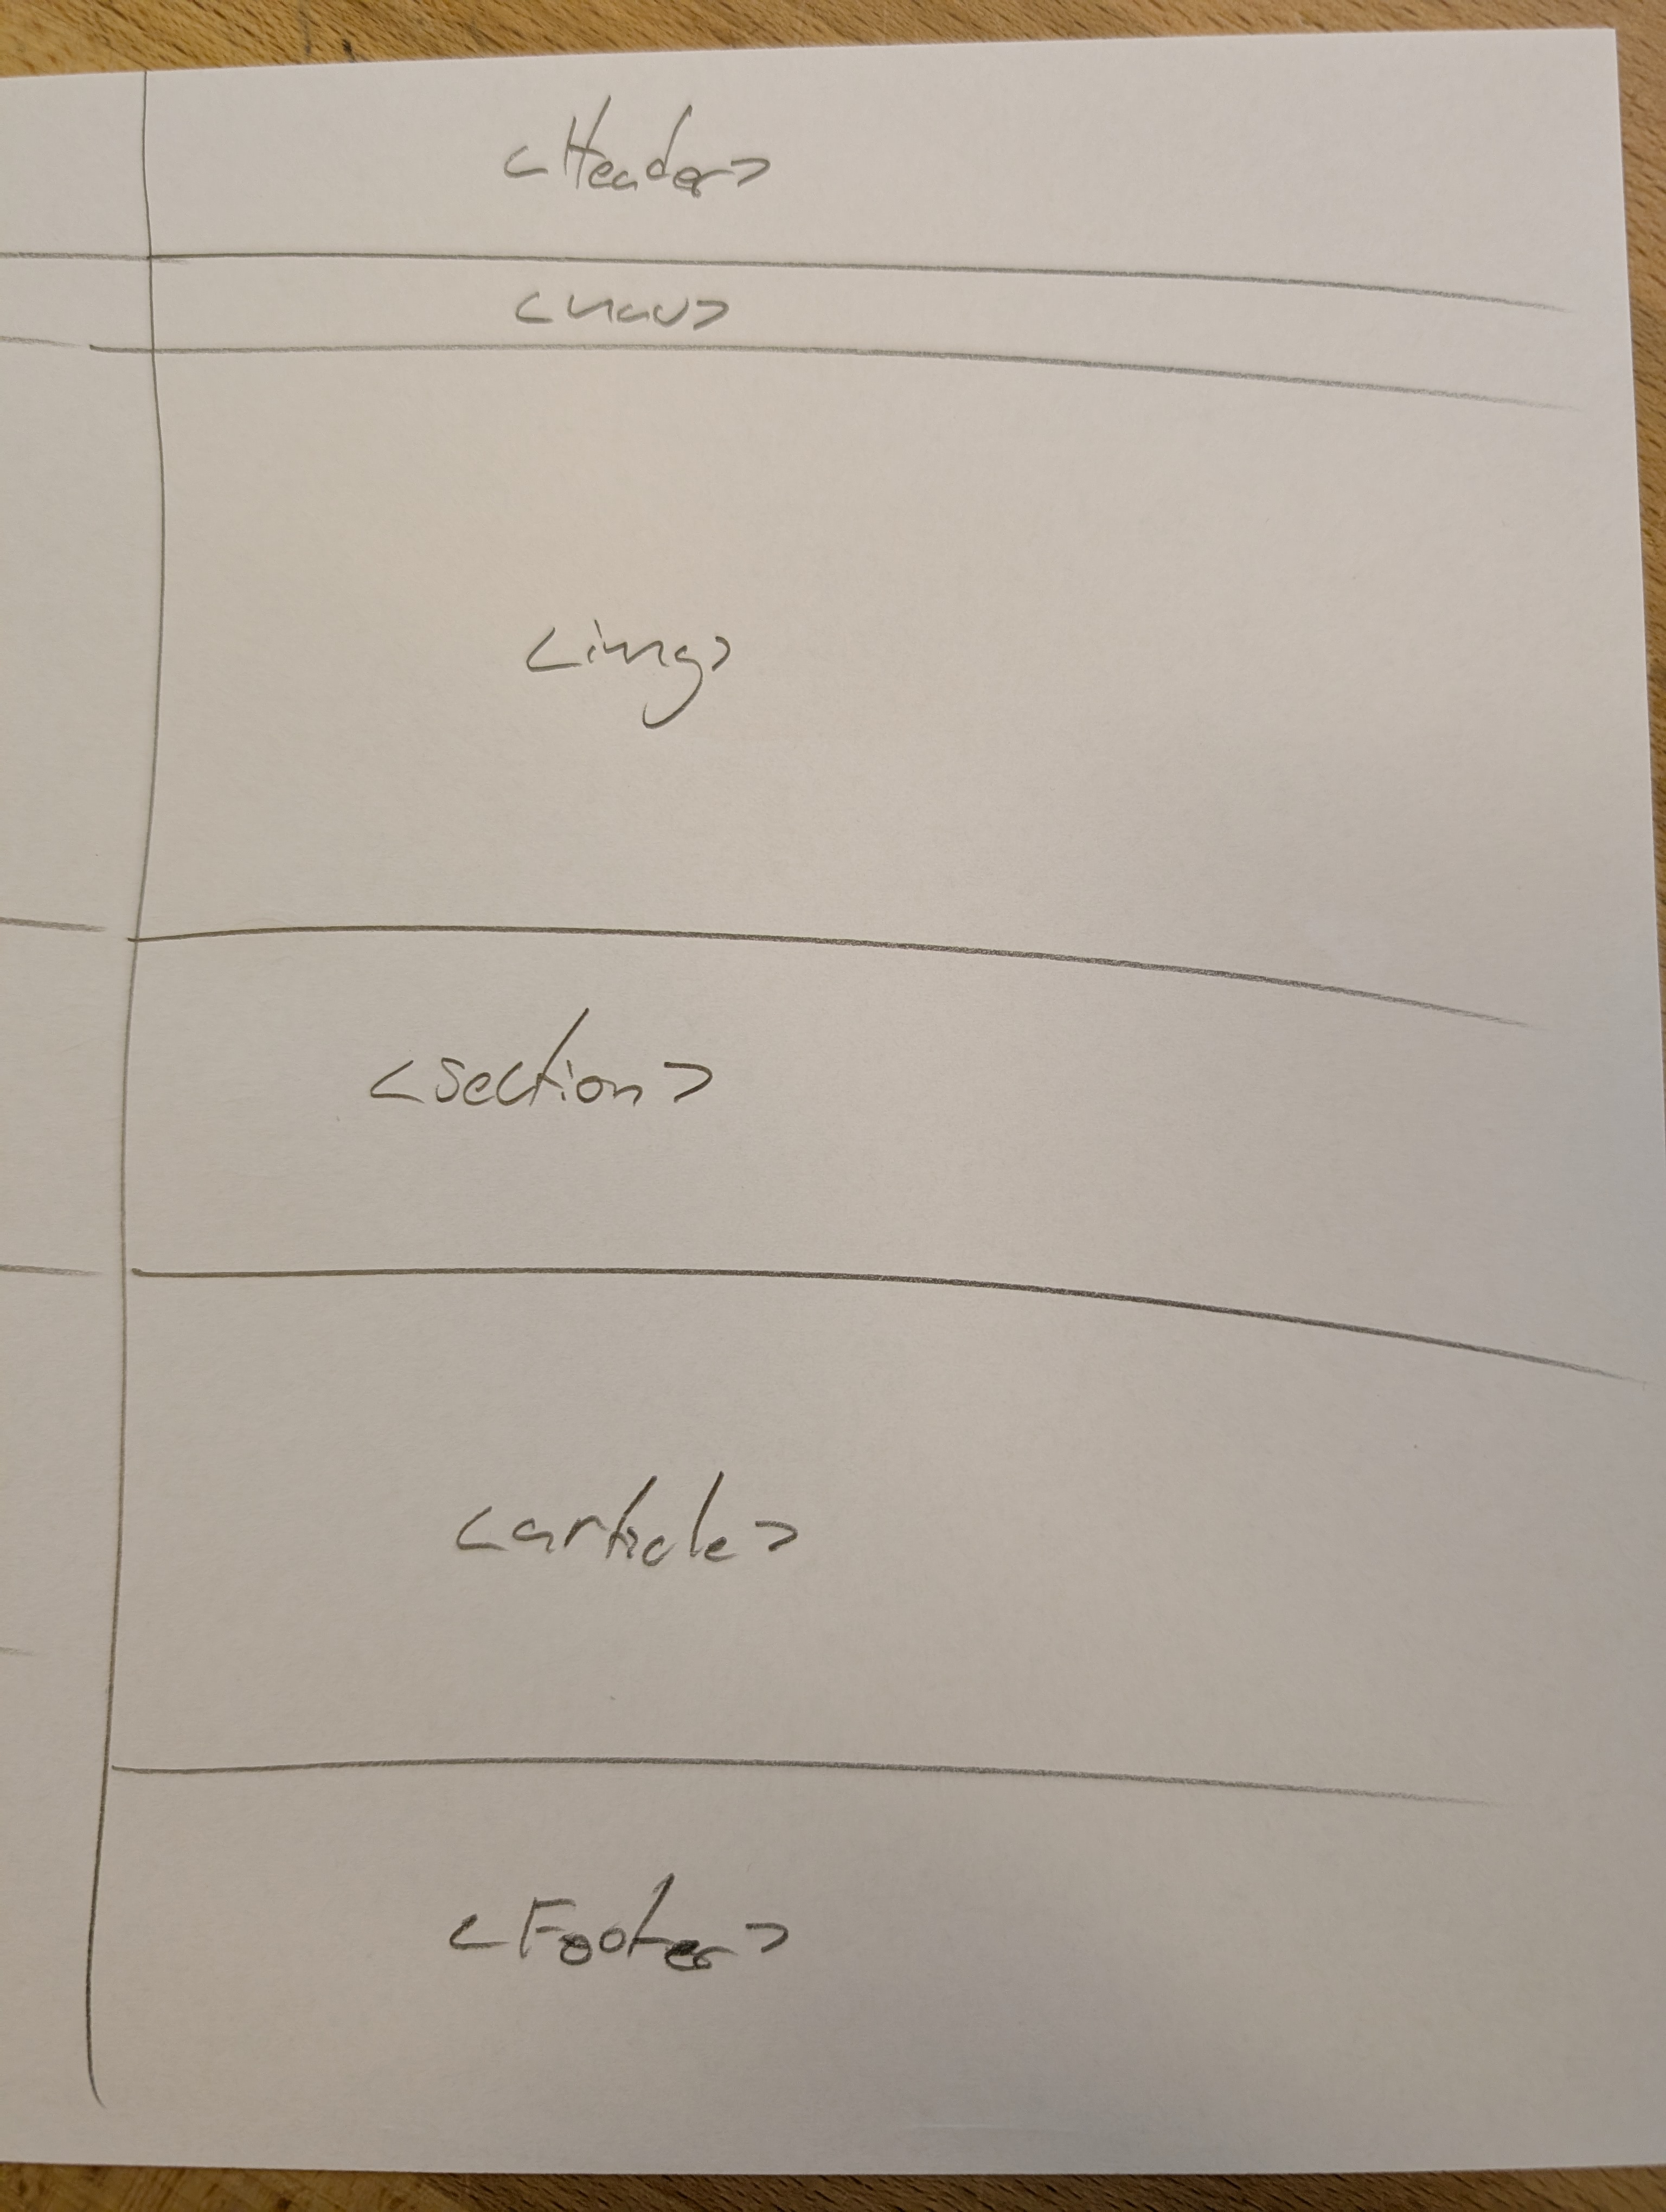 <Header>
<nav>
<img>
<section>
<article>
<Footer>